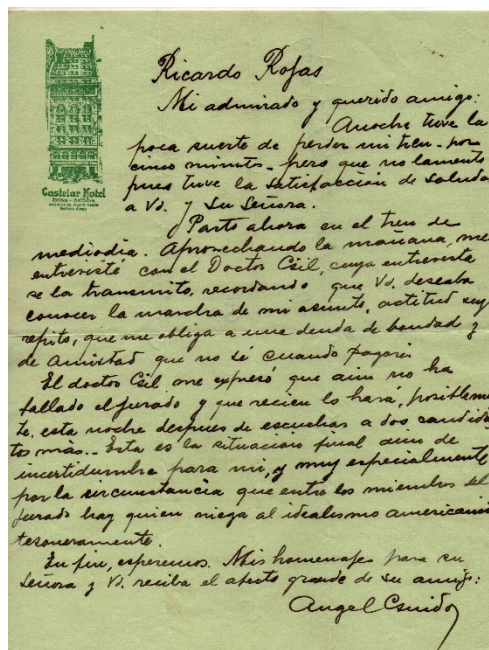 Castelar Hotel
Ricardo Rojas
Mi admirado y querido amigo:
Anoche tuve la
poca suerte de perder mi tren - por
cinco minutos - pero que no lamento
pues tuve la satisfacción de saludar
a Vd. y su Señora.
Parto ahora en el tren de
mediodía. Aprovechando la mañana, me
entrevisté con el Doctor Gil, cuya entrevista
se la transmito, recordando que Vd. deseaba
conocer la marcha de mi asunto, actitud
repito, que me obliga a una deuda de bondad y
de amistad que no sé cuando pagaré.
El doctor Gil me expresó que aún no ha
fallado el jurado y que recien lo hará, posiblemen
te, esta noche despues de escuchar a dos candida
tos más.. Esta es la situación final aún de
incertidumbre para mí, y muy especialmente
por la circunstancia que entre los miembros del
jurado hay quien niega al idealismo americano
tesoneramente.
En fin, esperemos. Mis homenajes para su
Señora y Vd. reciba el afecto grande de su amigo:
Angel Guido